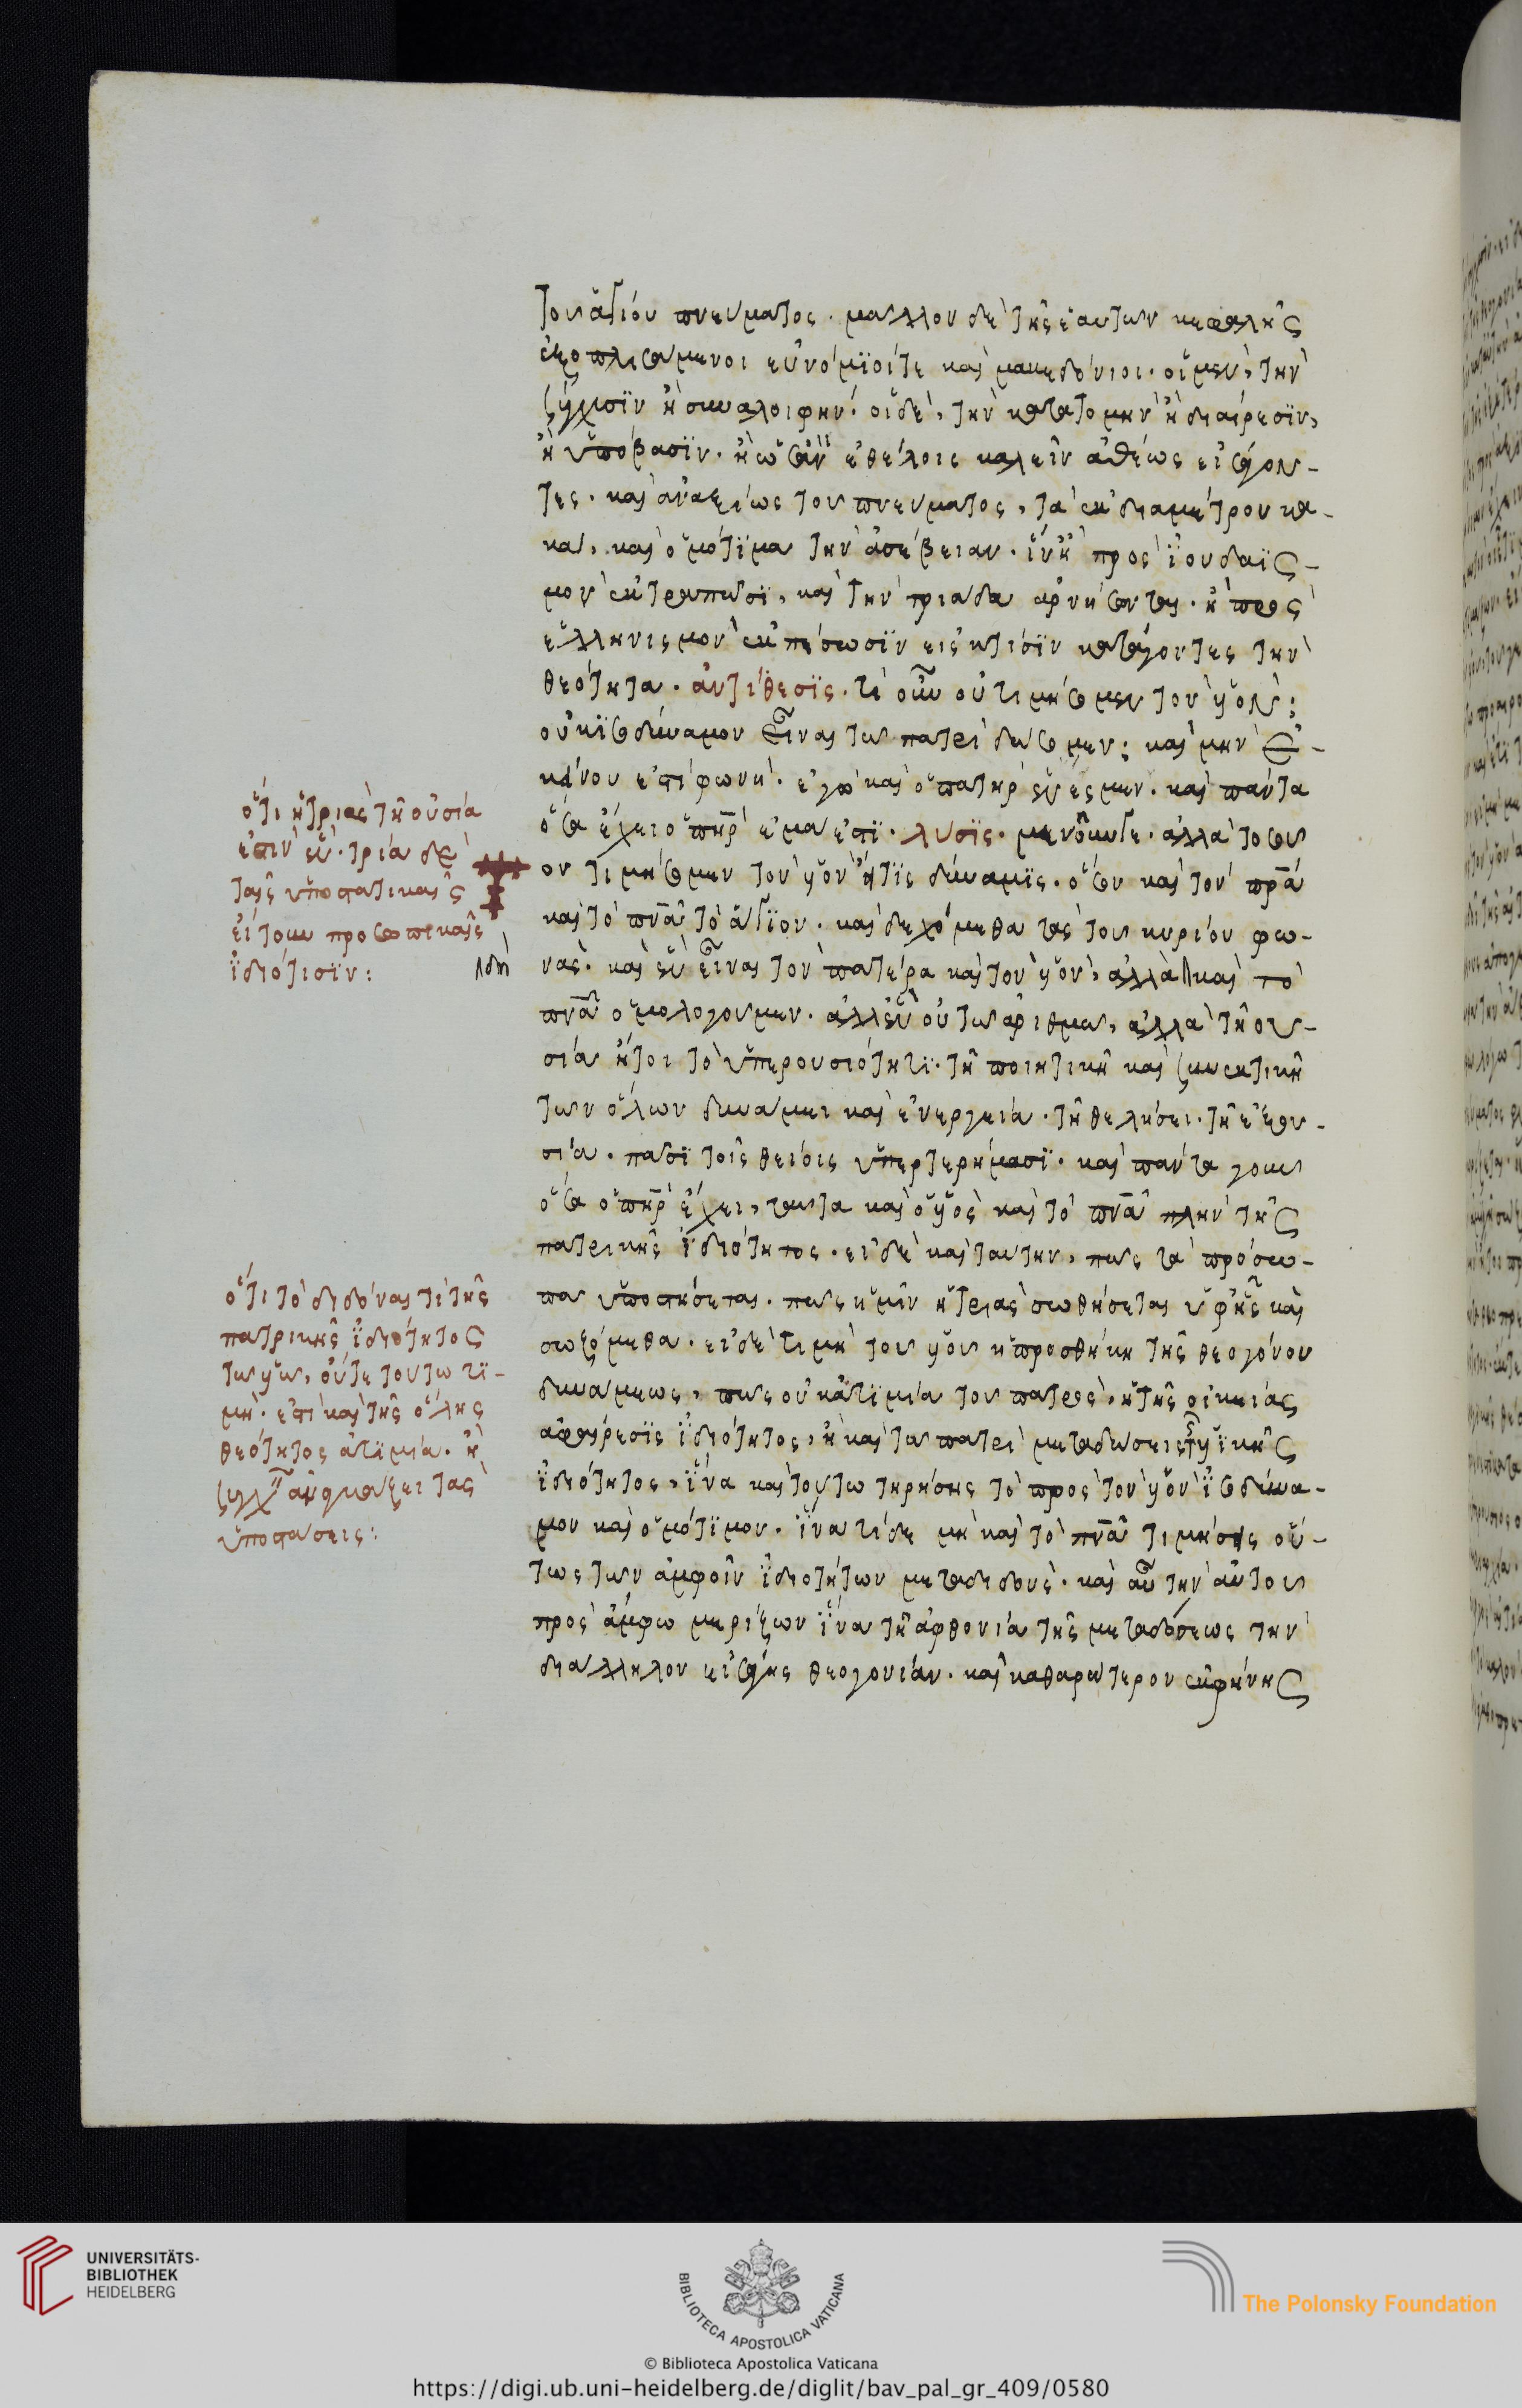 τοῦ ἁγίου πνεύματος. μᾶλλον δὲ τῆς ἑαυτῶν κεφαλῆς
ὁπλισάμενοι εὐνόμιοί τε καὶ μακεδόνιοι. οἱ μὲν, τὴν
σύγχυσϊν ἢ συναλοιφήν. οἱ δὲ, τὴν κατατομὴν ἢ διαίρεσϊν,
ἢ ὑπόβασϊν. ἢ ὡς ἂν ἐθέλοις καλεῖν ἀθέως εἰσάγον-
τες. καὶ ἀναξίως τοῦ πνεύματος, τὰ ἐκ διαμέτρου κα-
κὰ, καὶ ὁμότϊμα τὴν ἀσέβειαν. ἵν' ἢ πρὸς ϊουδαϊς-
μὸν ἐκτραπῶσϊ, καὶ τὴν τριάδα ἀρνήσωνται. ἢ πρὸς
ἑλληνισμὸν ἐκπέσωσϊν εἰς κτίσϊν κατάγοντες τὴν
θεότητα. ἀντίθεσϊς. τί οὖν οὐ τιμήσομεν τὸν υἱόν;
οὐκ ϊσοδύναμον εἶναι τῶ πατρὶ δώσομεν; καὶ μὴν ἐ-
κείνου ἐστὶ φωνή. ἐγὼ καὶ ὁ πατὴρ ἕν ἐσμεν. καὶ πάντα
ὅσα ἔχει ὁ πηρ ἐμά ἐστϊ. λύσϊς. μενοῦνγε. ἀλλὰ τοσοῦ
ον τιμήσομεν τὸν υἱὸν ἥτϊς δύναμϊς. ὅσον καὶ τὸν πρα
καὶ τὸ πνα τὸ ἅγϊον. καὶ δεχόμεθα τὰς τοῦ κυρίου φω-
νάς. καὶ ἓν εἶναι τὸν πατέρα καὶ τὸν υἱὸν, ἀλλὰ δὴ καὶ τὸ
πνα ὁμολογοῦμεν. ἀλλ' ἓν οὐ τῶ ἀριθμῶ, ἀλλὰ τῆ οὐ-
σία ἤτοι τὸ ὑπερουσιότητϊ. τῆ ποιητικῆ καὶ συνεκτικῆ
τῶν ὅλων δυνάμει καὶ ἐνεργεία. τῆ θελήσει. τῆ ἐξου-
σία. πᾶσϊ τοῖς θείοις ὑπερτερήμασϊ. καὶ πάντα γοῦν
ὅσα ὁ πηρ ἔχει, ταῦτα καὶ ὁ υἱὸς καὶ τὸ πνα πλὴν τῆς
πατρικῆς ϊδιότητος. εἰ δὲ καὶ ταύτην, πῶς τὰ πρόσω-
πα ὑποστήσεται. πῶς ἡμῖν ἡ τριὰς σωθήσεται ὑφ' ἧς καὶ
σωζόμεθα. εἰ δὲ τιμὴ τοῦ υἱοῦ ἡ προσθήκη τῆς θεογόνου
δυνάμεως, πῶς οὐκ ἀτϊμία τοῦ πατρὸς, ἡ τῆς οἰκείας
ἀφαίρεσϊς ϊδιότητος, ἢ καὶ τῶ πατρὶ μεταδώσεις τῆς υἱϊκῆς
ϊδιότητος, ϊνα καὶ τούτω τηρήσης τὸ πρὸς τὸν υἱὸν ϊσοδύνα-
μον καὶ ὁμότϊμον. ϊνα τί δὲ μὴ καὶ τὸ πνα τιμήσεις οὕ-
τως τῶν ἀμφοῖν ϊδιοτήτων μεταδιδούς. καὶ αὖ τὴν αὐτοῦ
πρὸς ἄμφω μερίζων ϊνα τῆ ἀφθονία τῆς μεταδόσεως τὴν
διάλληλον εἰσάγης θεογονίαν. καὶ καθαρώτερον ἐκφήνης
ὅτι ἡ τριὰς τῆ οὐσία
ἐστὶν ἕν. τρία δὲ
ταῖς ὑποστατικαῖς
εἴτουν προσωπικαῖς
ϊδιότισϊν:
ὅτι τὸ διδόναι τί τῆς
πατρικῆς ϊδιότητος
τῶ υἱῶ, οὔτε τούτω τϊ-
μὴ. ἐστὶ καὶ τῆς ὅλης
θεότητος ἀτϊμία. ἢ
τὰς
ὑποστάσεις:
UNIVERSITÄTS-
BIBLIOTHEK
HEIDELBERG
BIBLIOTECA APOSTOLICA VATICANA
The Polonsky Foundation
© Biblioteca Apostolica Vaticana
https://digi.ub.uni-heidelberg.de/diglit/bav_pal_gr_409/0580